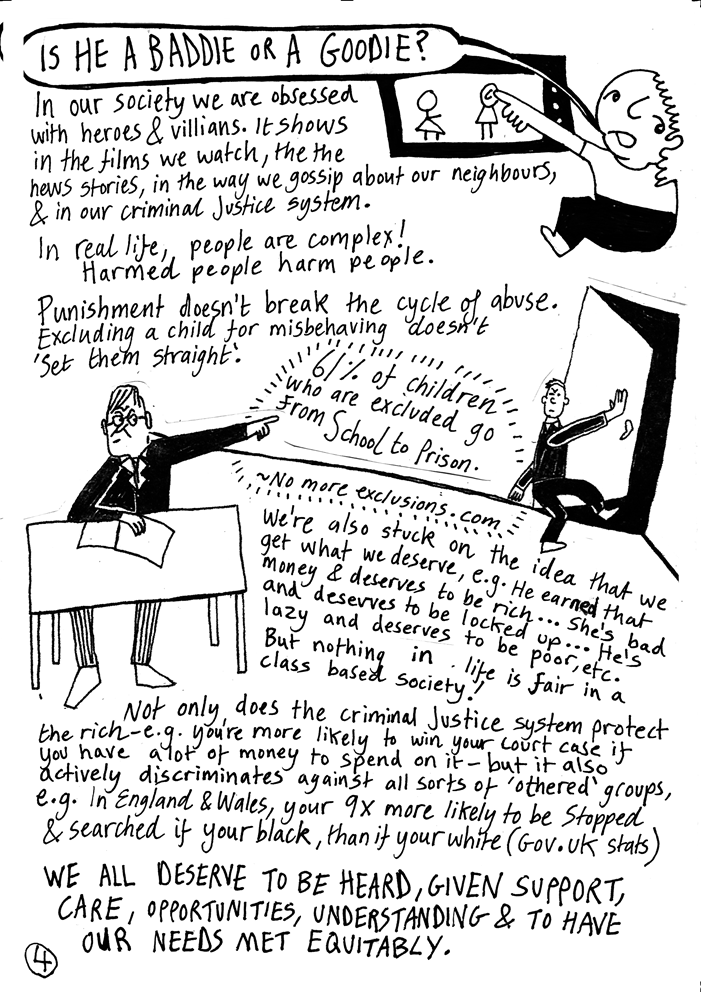 IS HE A BADDIE OR A GOODIE?
In our society we are obsessed
with heroes & villians. It shows
in the films we watch, the the
news stories, in the way we gossip about our neighbours,
& in our criminal Justice system.
In real life, people are complex!
Harmed people harm people.
Punishment doesn't break the cycle of abuse.
Excluding a child for misbehaving doesn't
'set them straight'.
61% of children
who are excluded go
from School to Prison.
~No more exclusions.com
We're also stuck on the idea that we
get what we deserve, e.g. He earned that
money & deserves to be rich... She's bad
and deserves to be locked up... He's
lazy and deserves to be poor, etc.
But nothing in life is fair in a
class based society!
Not only does the criminal Justice system protect
the rich - e.g. you're more likely to win your court case if
you have a lot of money to spend on it - but it also
actively discriminates against all sorts of 'othered' groups,
e.g. In England & Wales, your 9x more likely to be stopped
& searched if your black, than if your white (Gov.uk stats)
WE ALL DESERVE TO BE HEARD, GIVEN SUPPORT,
CARE, OPPORTUNITIES, UNDERSTANDING & TO HAVE
OUR NEEDS MET EQUITABLY.
4